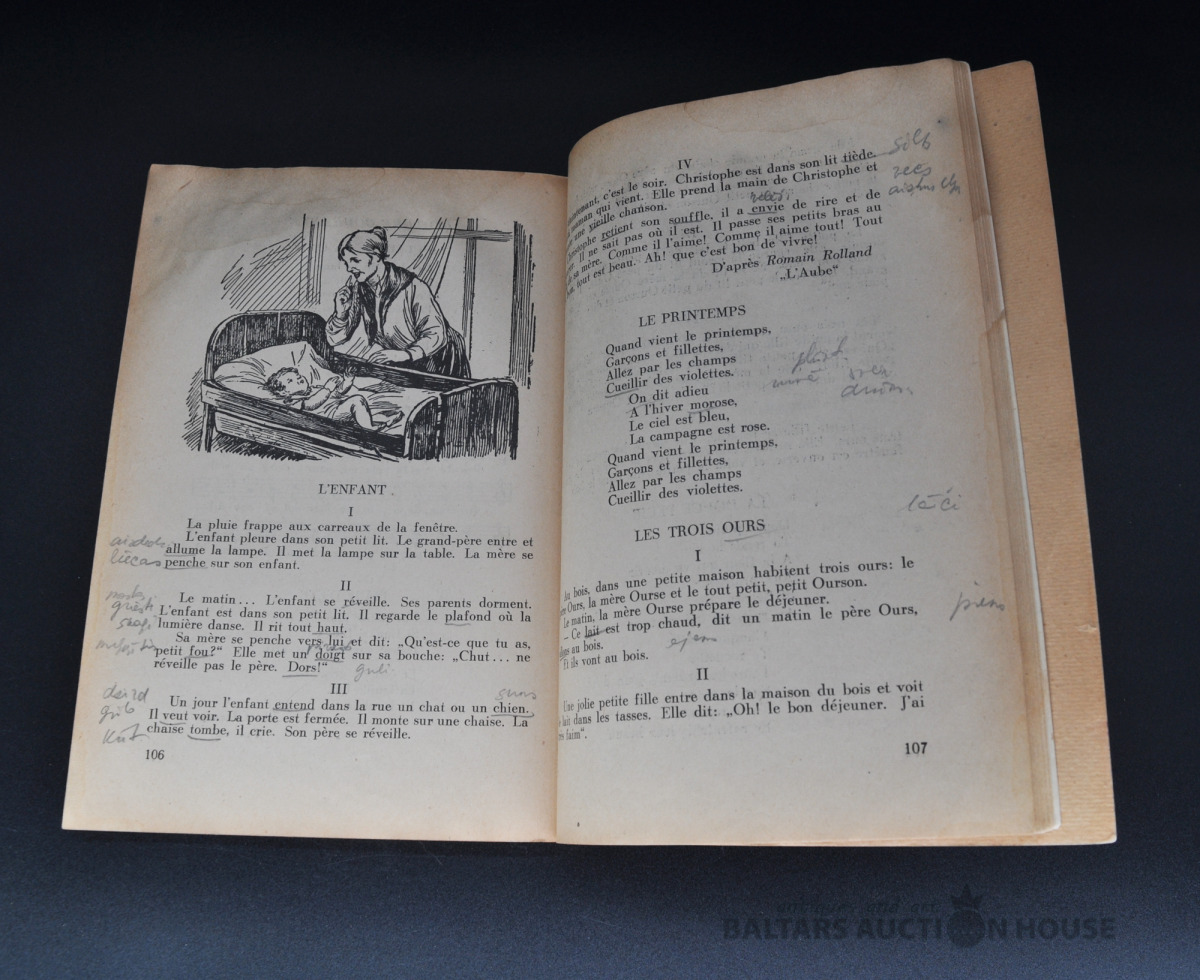 L'ENFANT
I
La pluie frappe aux carreaux de la fenêtre.
L'enfant pleure dans son petit lit. Le grand-père entre et
allume la lampe. Il met la lampe sur la table. La mère se
liecas penche sur son enfant.
II
Le matin... L'enfant se réveille. Ses parents dorment.
L'enfant est dans son petit lit. Il regarde le plafond où la
lumière danse. Il rit tout haut.
Sa mère se penche vers lui et dit: „Qu'est-ce que tu as,
petit fou?" Elle met un doigt sur sa bouche: „Chut... ne
réveille pas le père. Dors!"
guli
III
dzird
suns
Un jour l'enfant entend dans la rue un chat ou un chien.
grib Il veut voir. La porte est fermée. Il monte sur une chaise. La
krīt chaise tombe, il crie. Son père se réveille.
106
IV
silts
c'est le soir. Christophe est dans son lit tiède.
vecs
maman qui vient. Elle prend la main de Christophe et
une vieille chanson.
retient son souffle, il a envie de rire et de
Il ne sait pas où il est. Il passe ses petits bras au
sa mère. Comme il l'aime! Comme il aime tout! Tout
tout est beau. Ah! que c'est bon de vivre!
D'après Romain Rolland
„L'Aube"
LE PRINTEMPS
Quand vient le printemps,
Garçons et fillettes,
Allez par les champs
Cueillir des violettes.
On dit adieu
A l'hiver morose,
Le ciel est bleu,
La campagne est rose.
Quand vient le printemps,
Garçons et fillettes,
Allez par les champs
Cueillir des violettes.
lāči
LES TROIS OURS
I
bois, dans une petite maison habitent trois ours: le
Ours, la mère Ourse et le tout petit, petit Ourson.
Le matin, la mère Ourse prépare le déjeuner.
piens
– Ce lait est trop chaud, dit un matin le père Ours,
au bois.
ejam
Et ils vont au bois.
II
Une jolie petite fille entre dans la maison du bois et voit
lait dans les tasses. Elle dit: „Oh! le bon déjeuner. J'ai
faim".
107
BALTARS AUCTION HOUSE